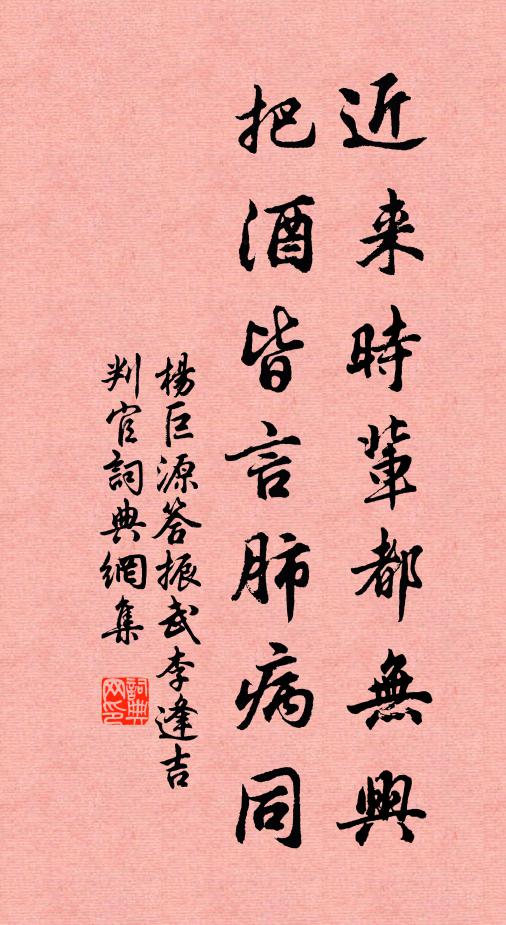 近来時輩都無興
把酒皆言肺病同
楊巨源答振武李逢吉
判官詞典網集
詞典网印